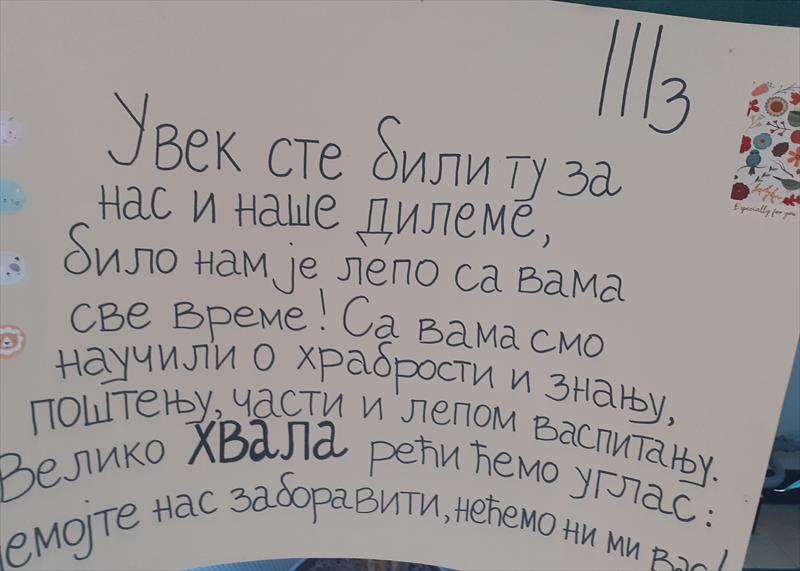 III3
Увек сте били ту за
нас и наше дилеме,
било нам је лепо са вама
све време! Са вама смо
научили о храбрости и знању,
поштењу, части и лепом васпитању.
Велико ХВАЛА рећи ћемо углас:
емојте нас заборавити, нећемо ни ми вас!
Especially for you